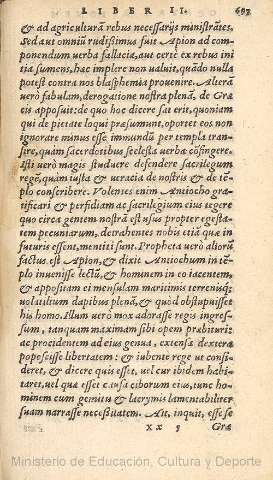 LIBER II. 693
& ad agriculturã rebus necessarijs ministrãtes.
Sed aut omniũ rudißimus fuit Apion ad com
ponendum uerba fallacia, aut certè ex rebus ini
tia sumens, hæc implere non ualuit, quãdo nulla
potest contra nos blasphemia prouenire. Alterã
uerò fabulam, derogatione nostra plenã, de Græ
cis apposuit: de quo hoc dicere sat erit, quoniam
qui de pietate loqui præsumunt, oportet eos non
ignorare minus esse immundũ per templa tran
ire, quàm sacerdotibus scelesta uerba cõfingere.
Isti uerò magis studuere defendere sacrilegum
regẽ, quàm iusta & ueracia de nostris & de tẽ-
plo conscribere. Volentes enim Antiocho gra
tificari & perfidiam ac sacrilegium eius tegere
quo circa gentem nostrã est usus propter egesta
tem pecuniarum, detrahentes nobis etiã quæ in
futuris essent, mentiti sunt. Propheta uerò aliorũ
factus est Apion, & dixit Antiochum in tẽ-
plo inuenisse lectũ, & hominem in eo iacentem,
& appositam ei mensulam maritimis terrenisq;
uolatilium dapibus plenã, & quòd obstupuisset
his homo. Illum uerò mox adorasse regis ingres
sum, tanquam maximam sibi opem præbituri:
ac procidentem ad eius genua, extensa dextera
poposcisse libertatem: & iubente rege ut confi
deret, & diceret quis esset, uel cur ibidem habi-
taret, uel quæ esset causa ciborum eius, tunc ho
minem cum gemitu & lacrymis lamentabiliter
suam narrasse necessitatem. Ait, inquit, esse se
xx 5 Græ
Ministerio de Educación, Cultura y Deporte